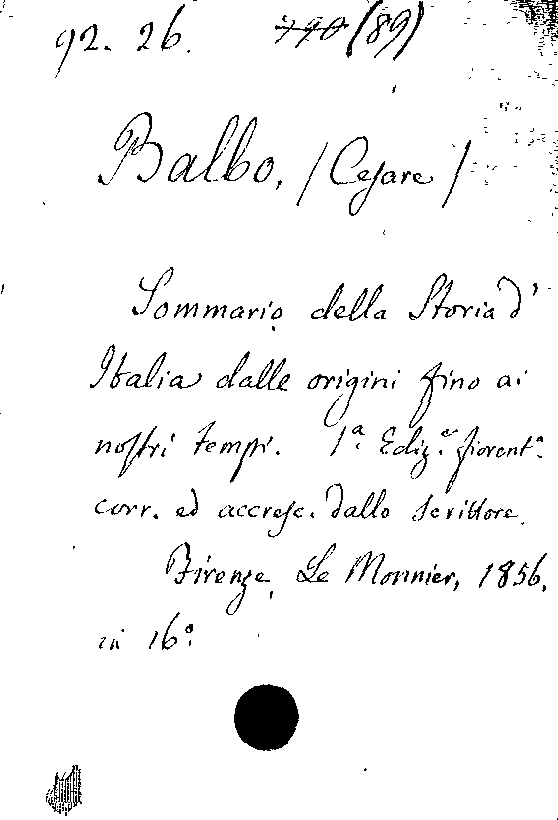 92. 26. 790 (89)
Balbo, /Cesare/
Sommario della Storia d'
Italia dalle origini fino ai
nostri tempi. 1ª Ediz.ᵉ fiorent.ª
corr. ed accresc. dallo scrittore.
Firenze, Le Monnier, 1856.
in 16º.